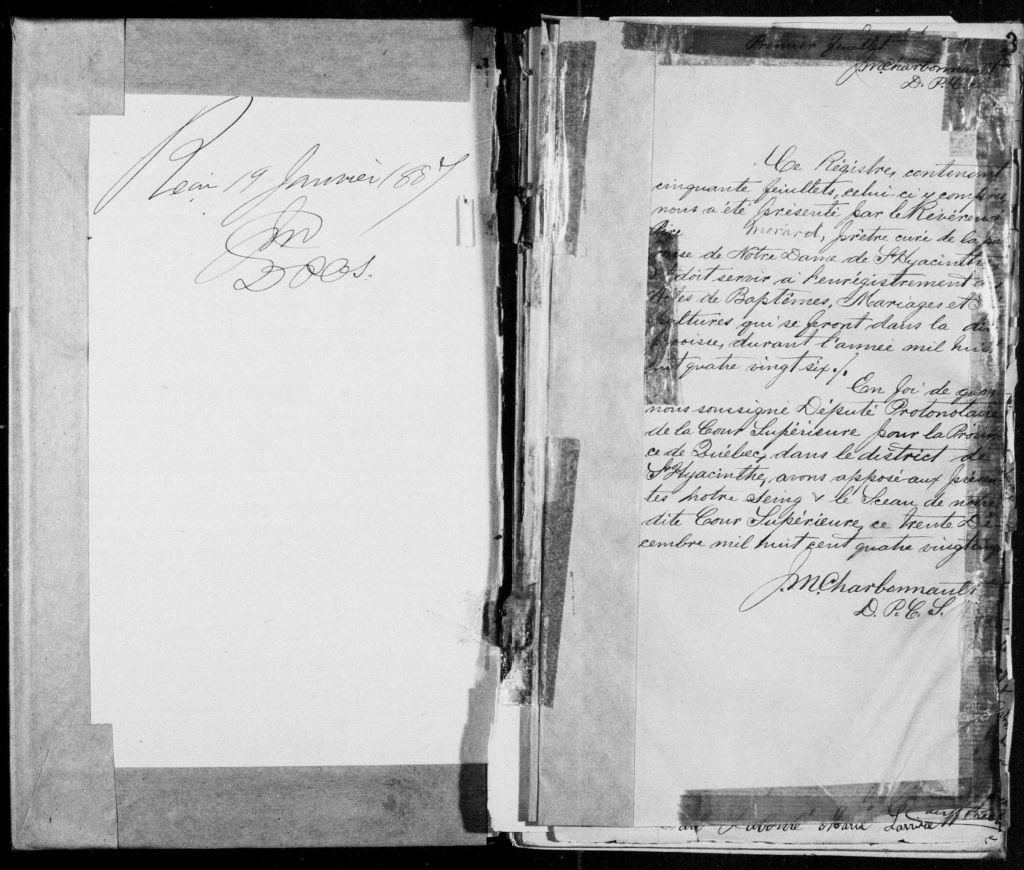 Reçu 19 Janvier 1887
3
Premier feuillet
J. M. Charbonnault
D. P. C.
Ce Régistre, contenant
cinquante feiultets, celui-ci y compris
nous a été présenté par le Révérend
Morard, prêtre curé de la pa
isse de Notre Dame de St Hyacinthe
doit servir à l'enrégistrement
de Baptêmes, Mariages et S
ultures qui se feront dans la di
oisse, durant l'année mil hui
nt quatre vingt six ./.
En foi de quoi
nous soussigné Député Protonotaire
de la Cour Supérieure pour la Provin
ce de Québec, dans le district de
St Hyacinthe, avons apposé aux présen
tes notre seing & le Sceau de notre
dite Cour Supérieure, ce trente Dé
cembre mil huit cent quatre vingt cinq
J. M. Charbonnault
D. P. C. S.
Marie